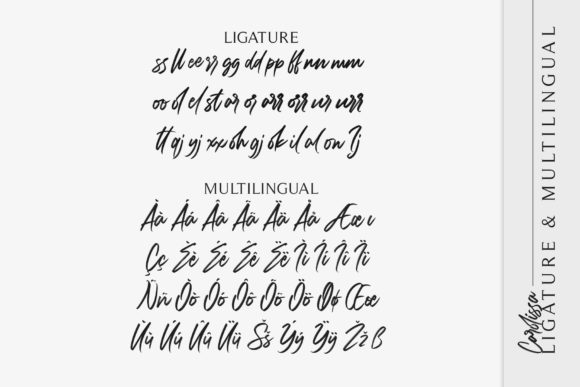 LIGATURE
ss ll ee rr gg dd pp ff nn mm
oo ol el st ar or arr orr ur urr
tt aj yj xx oh gj ok il al on Ij
MULTILINGUAL
Àà Áá Ââ Ãã Ää Åå Ææ ı
Çç Èè Éé Êê Ëë Ìì Íí Îî Ïï
Ññ Òò Óó Ôô Õõ Öö Øø Œœ
Ùù Úú Ûû Üü Šš Ýý Ÿÿ Žž ß
Cardissa
LIGATURE & MULTILINGUAL